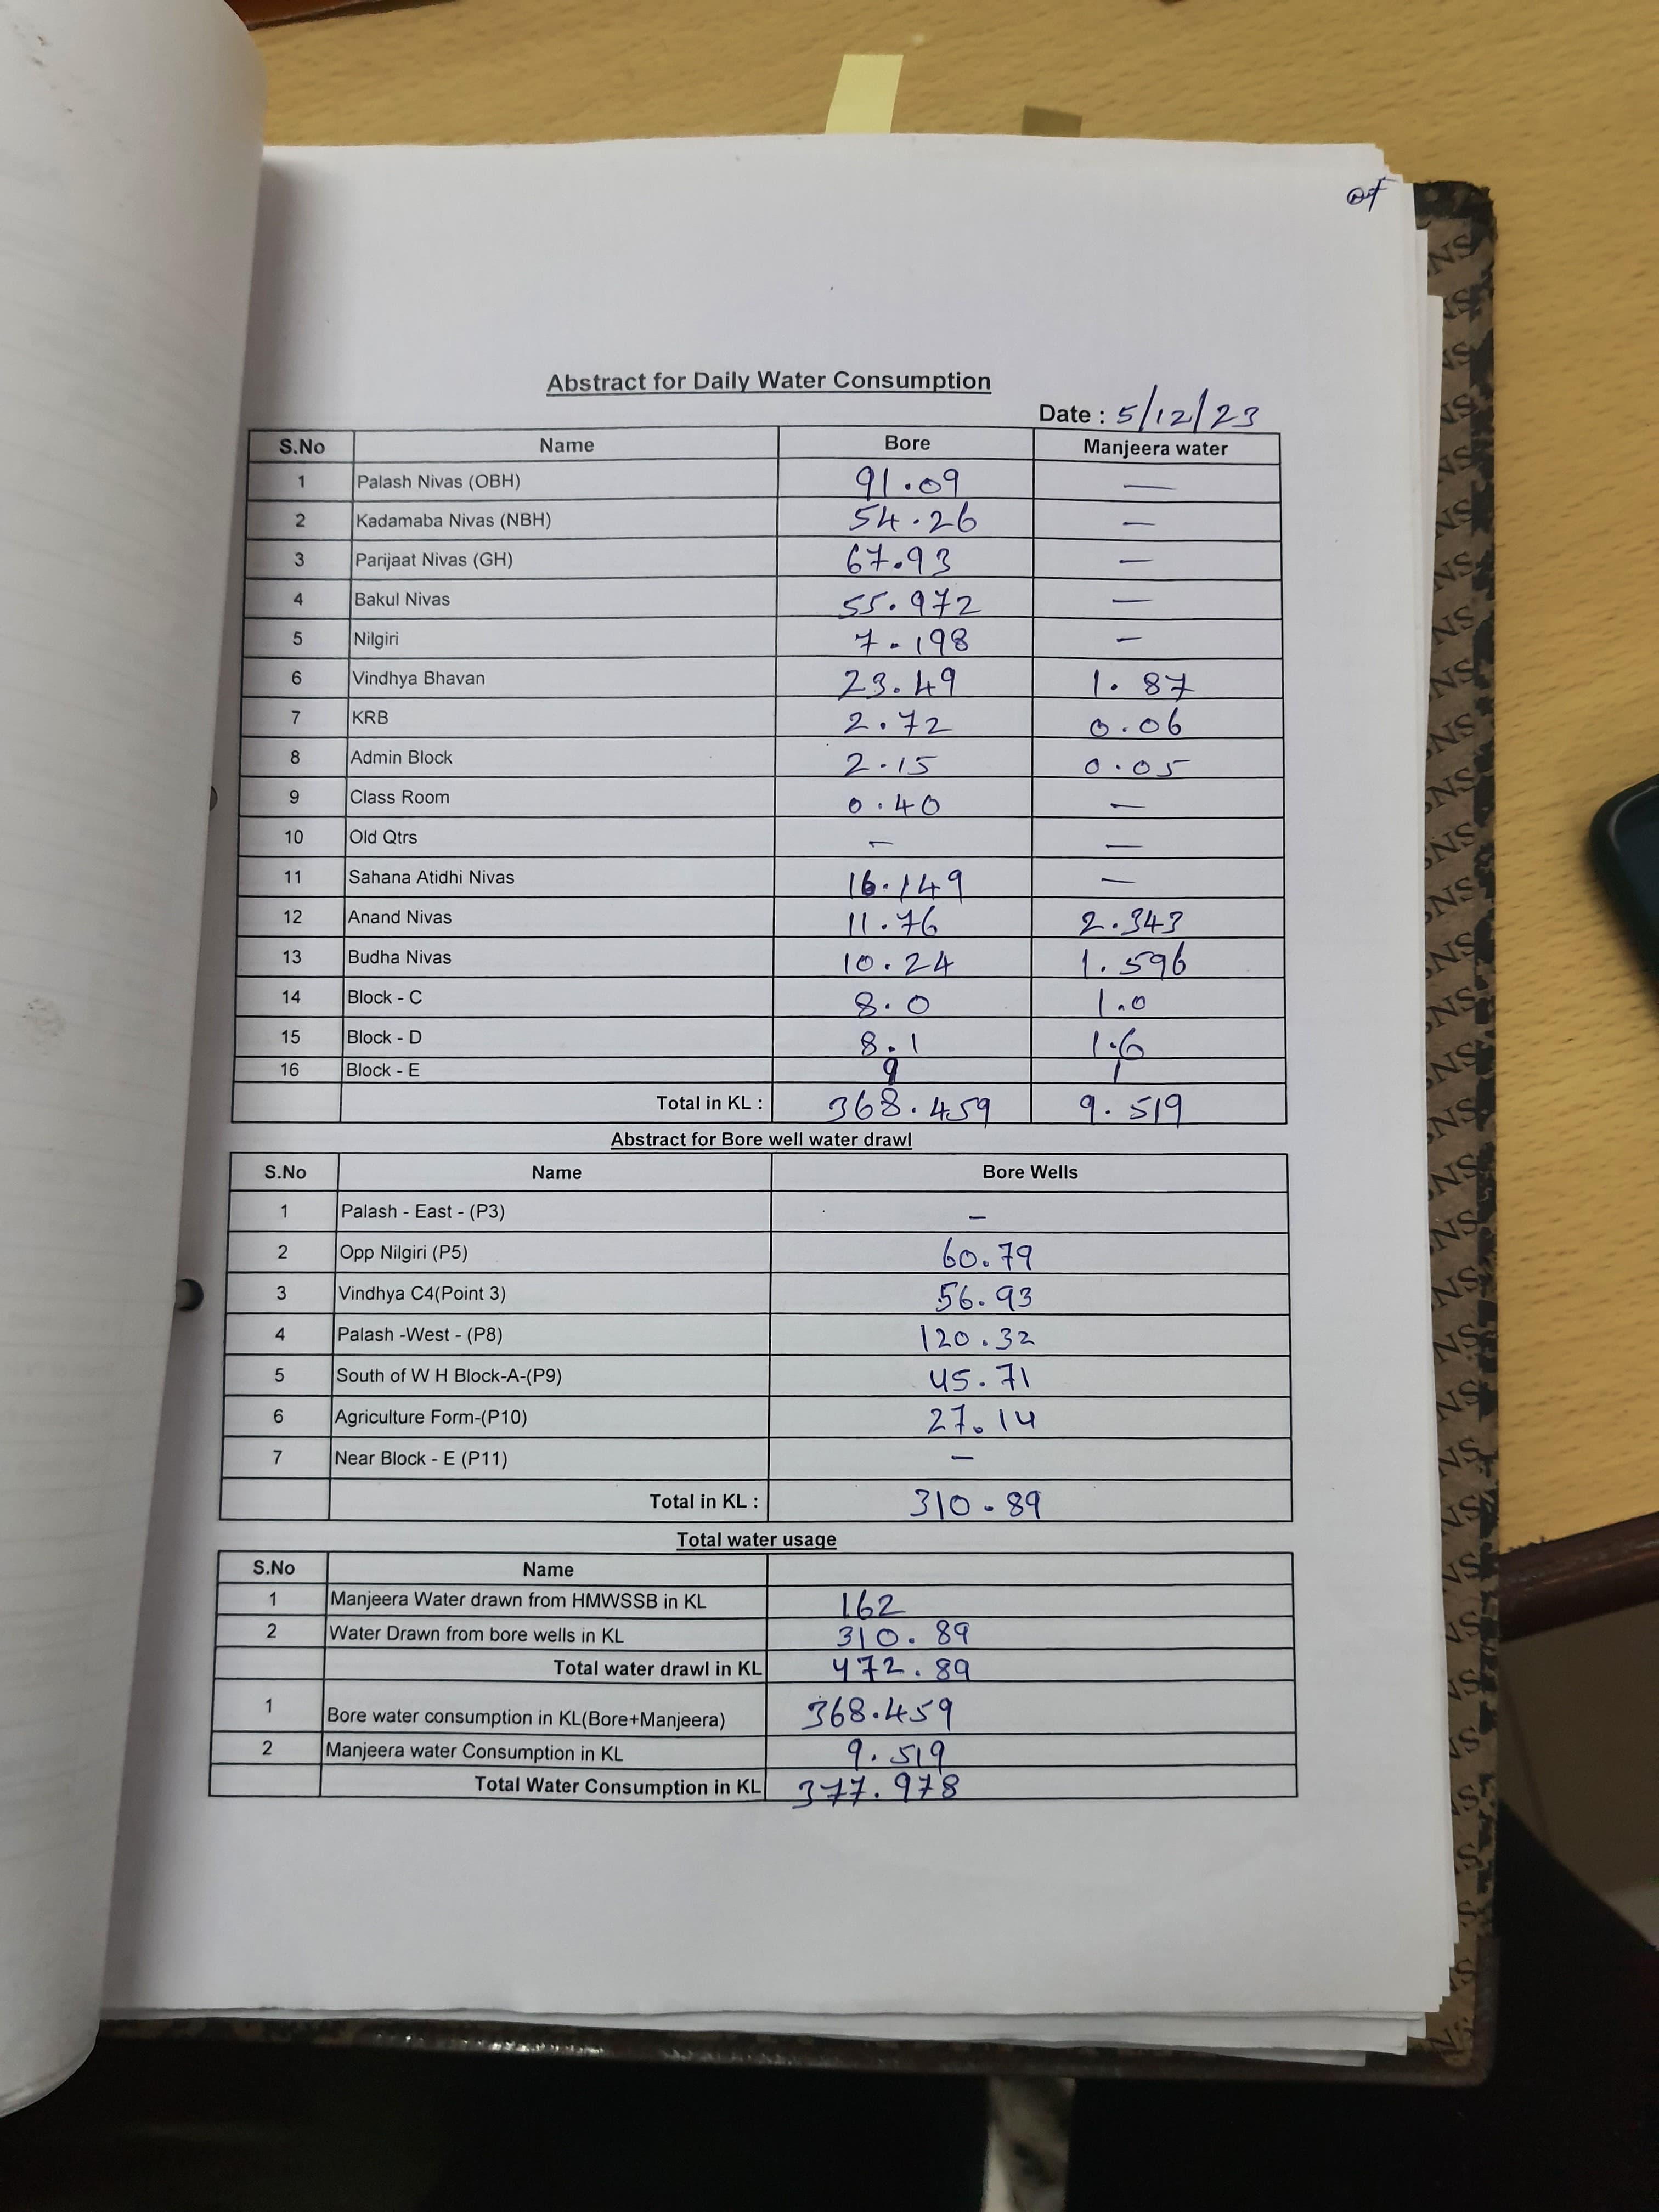 of
Abstract for Daily Water Consumption
Date : 5/12/23
S.No Name Bore Manjeera water
1 Palash Nivas (OBH) 91.09 —
2 Kadamaba Nivas (NBH) 54.26 —
3 Parijaat Nivas (GH) 67.93 —
4 Bakul Nivas 55.972 —
5 Nilgiri 7.198 —
6 Vindhya Bhavan 23.49 1.87
7 KRB 2.72 0.06
8 Admin Block 2.15 0.05
9 Class Room 0.40 —
10 Old Qtrs — —
11 Sahana Atidhi Nivas 16.149 —
12 Anand Nivas 11.76 2.343
13 Budha Nivas 10.24 1.596
14 Block - C 8.0 1.0
15 Block - D 8.1 1.6
16 Block - E 9 1
Total in KL : 368.459 9.519
Abstract for Bore well water drawl
S.No Name Bore Wells
1 Palash - East - (P3) —
2 Opp Nilgiri (P5) 60.79
3 Vindhya C4(Point 3) 56.93
4 Palash -West - (P8) 120.32
5 South of W H Block-A-(P9) 45.71
6 Agriculture Form-(P10) 27.14
7 Near Block - E (P11) —
Total in KL : 310.89
Total water usage
S.No Name
1 Manjeera Water drawn from HMWSSB in KL 162
2 Water Drawn from bore wells in KL 310.89
Total water drawl in KL 472.89
1 Bore water consumption in KL(Bore+Manjeera) 368.459
2 Manjeera water Consumption in KL 9.519
Total Water Consumption in KL 377.978